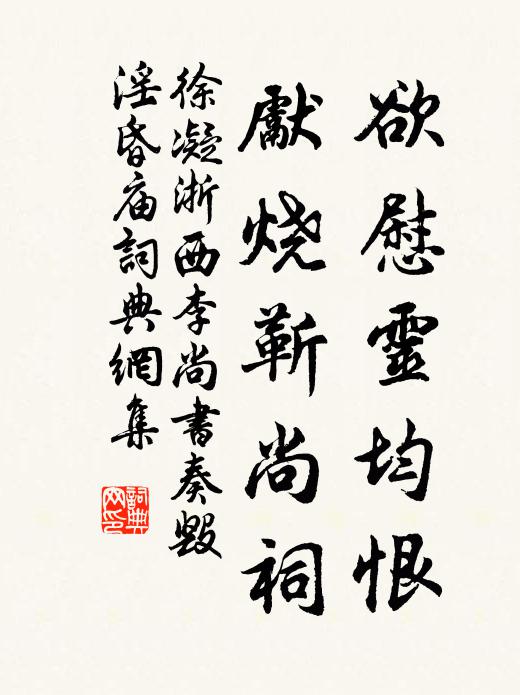 欲慰靈均恨
獻烧靳尚祠
徐凝浙西李尚書奏毀
淫昏庙詞典網集
詞典网印